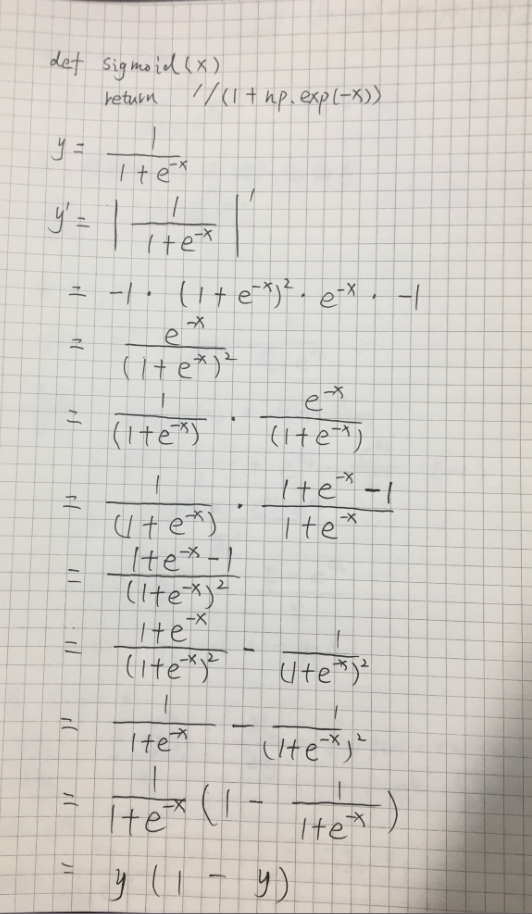 def sigmoid(x)
return 1/(1 + np.exp(-x))
y = 1 / (1 + e^-x)
y' = | 1 / (1 + e^-x) |'
= -1 · (1 + e^-x)^2 · e^-x · -1
= e^-x / (1 + e^-x)^2
= 1 / (1+e^-x) · e^-x / (1+e^-x)
= 1 / (1 + e^-x) · (1 + e^-x - 1) / (1 + e^-x)
= (1+e^-x - 1) / (1+e^-x)^2
= (1+e^-x) / (1+e^-x)^2 - 1 / (1+e^-x)^2
= 1 / (1+e^-x) - 1 / (1+e^-x)^2
= 1 / (1+e^-x) (1 - 1 / (1+e^-x))
= y (1 - y)